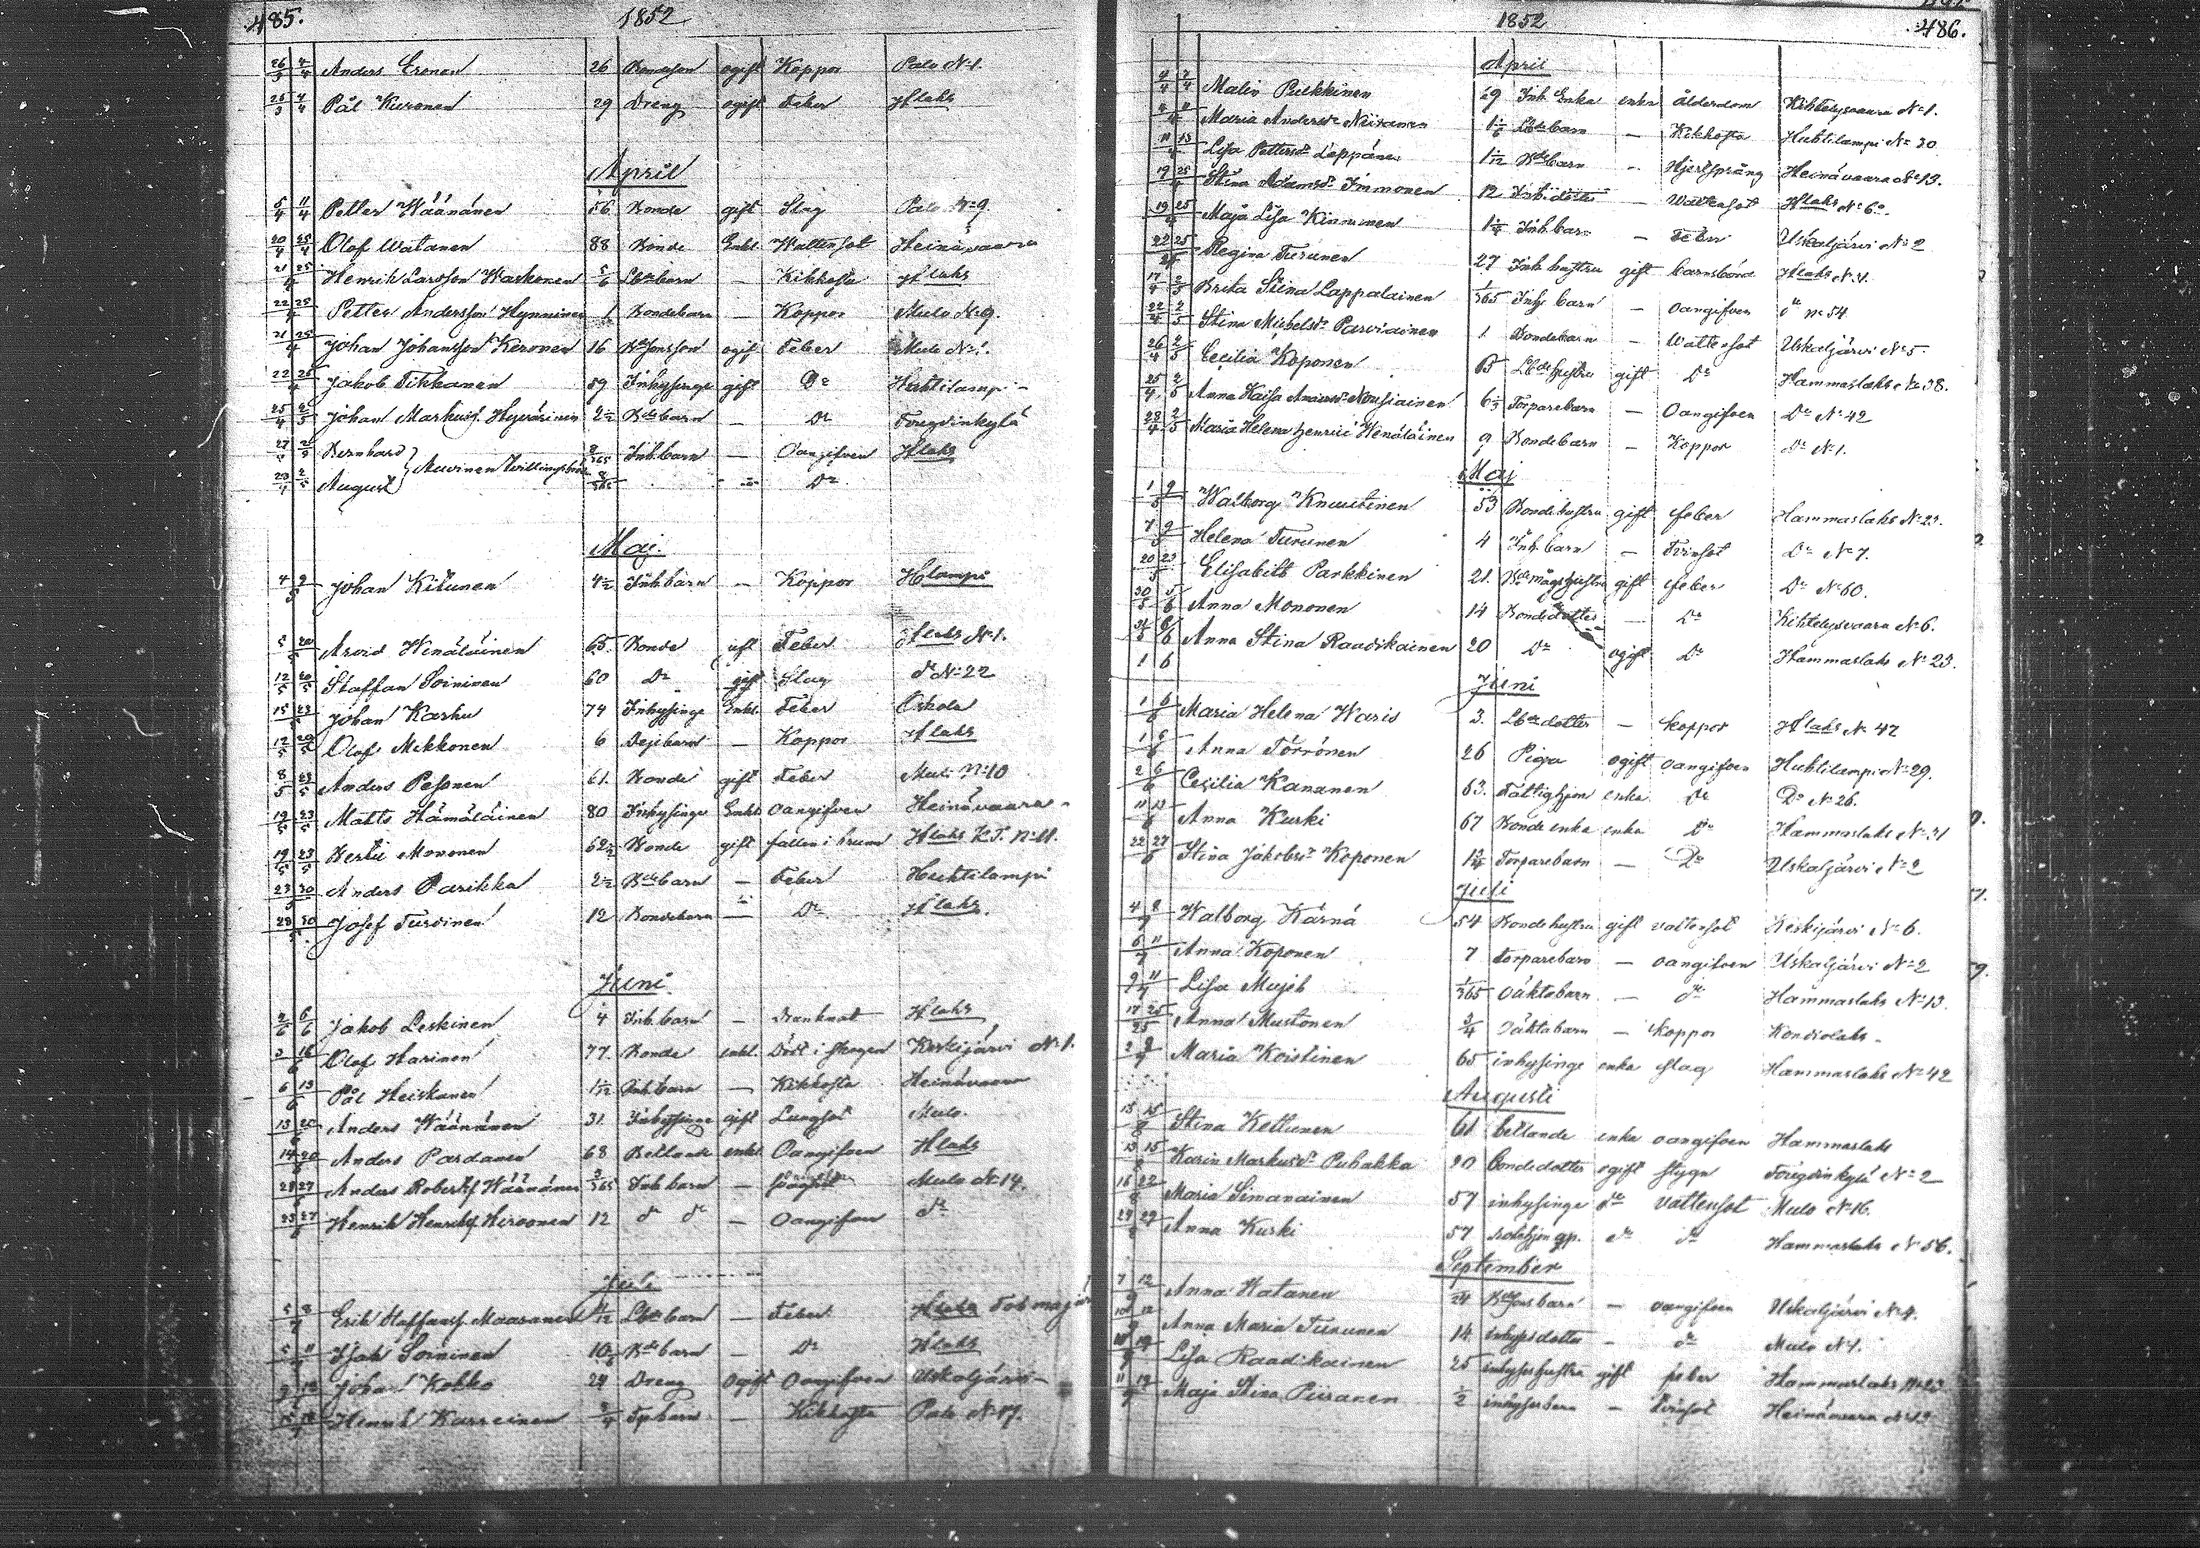 485. 1852
26/3 4/4 Anders Eronen 26 Bondeson ogift Koppor Palo No 1.
26/3 4/4 Pål Kieronen 29 Dreng ogift Feber Hlaks
April
5/4 11/4 Petter Wäänänen 56 Bonde gift Slag Palo No 9
20/4 25/4 Olof Watanen 88 Bonde Enkl. Wattensot Heinävaara
21 25/4 Henrik Larsson Waskonen 5/6 Lbdebarn — Kikhosta Hlaks
22 25/4 Petter Andersson Hynninen 1 Bondebarn — Koppor Mulo No 9.
21 25/4 Johan Johansson Keronen 16 ogift Feber Mulo No 1.
22 25/4 Jakob Tikkanen 59 Inhysinge gift Do Huhtilampi
25/4 2/5 Johan Markuss. Hyvärinen 2 1/2 Bdebarn — Do Fougdinkylä
27 2/5 Bernhard 2/365 Inh.barn — Oangifven Hlaks
28/4 2/5 August } Auvinen 8/365 — Do
Maj.
4 9/5 Johan Kitunen 4 1/2 Inh.barn — Koppor Hlampi
5 20/5 Arvid Wenäläinen 65. Bonde gift Feber Hlaks No 1.
12/5 20/5 Staffan Soininen 60 Do gift Slag do No 22
15 23/5 Johan Karhu 74 Inhysinge Enkl. Feber Oskola
12/5 20/5 Olof Mikkonen 6 — Koppor Hlaks
8/5 23/5 Anders Pesonen 61. Bonde gift Feber Mulo No 10
19/5 23/5 Matts Hämäläinen 80 Inhysinge Enkl. Oangifven Heinävaara
19/5 23/5 Bertil Mononen 62 1/2 Bonde gift fallen i brunn Hlaks No 11.
23 30/5 Anders Parikka 2 1/2 Bdebarn — Feber Huhtilampi
28 30/5 Josef Turvinen 12 Bondebarn — Do Hlaks.
Juni
2/6 6/6 Jakob Leskinen 4 Inh.barn — Drunknat Hlaks
3 16/6 Olof Harinen 77. Bonde enkl. Död i skogen Keskijärvi No 1.
6 13/6 Pål Heiskanen 1 1/12 Inh.barn — Kikhosta Heinävaara
13 20/6 Anders Wäänänen 31. Inhysinge gift Lungsot Mulo.
14 20/6 Anders Pardanen 68 Bettlande enkl. Oangifven Hlaks
28 27/6 Anders Robertsf Wäänänen 3/365 Inh.barn — Mulo No 14.
25 27/6 Henrik Henriksf Hirvonen 12 do do — Oangifven do
Juli
5 8/7 Erik Staffansf Maaranen 4/12 Lbdebarn — Feber Hlaks
5 11/7 Isak Soininen 10 Bdebarn — Do Hlaks
9 12/7 Johan Kokko 24 Dreng Ogift Oangifven Uskaljärvi
Henrik Karreinen 3/4 Tp.barn — Kikhosta Palo No 17.
1852 486.
April
4/4 7/4 Malin Pulkkinen 69 Inh. Enka enka ålderdom Kihtelysvaara No 1.
4 11/4 Maria Andersdr Niiranen 1 1/6 Lbdebarn — Kikhosta Huhtilampi No 30
11 13/4 Lisa Pettersdr Leppänen 1 1/12 Bdebarn — Hjertsprång Heinävaara No 13.
19 25/4 Stina Adamsdr Immonen 12 Inh.dotter — Wattensot Hlaks No 60.
19 25/4 Maja Lisa Kinnunen 1 1/4 Inh.barn — Feber Uskaljärvi No 2
22 25/4 Regina Turunen 27 Inh. hustru gift barnsbörd Hlaks No 4.
17/4 2/5 Brita Stina Lappalainen 1/365 Inh. barn — oangifven do no 54
22/4 2/5 Stina Michelsdr Parviainen 1 Bondebarn — Wattensot Uskaljärvi No 5.
26/4 2/5 Cecilia Koponen 65 Lbdehustru gift Do Hammaslaks No 38.
25/4 2/5 Anna Kaisa Andersdr Nousiainen 6 1/2 Torparebarn — Oangifven Do No 42
28/4 2/5 Maria Helena Henrics Wenäläinen 9 Bondebarn — Koppor Do No 1.
Maj
1 9/5 Walborg Knuutinen 53 Bondehustru gift feber Hammaslaks No 23.
7 9/5 Helena Turunen 4 Inh. barn — Tvinsot Do No 7.
20 23/5 Elisabeth Parkkinen 21. Bdemågshustru gift feber Do No 60.
30/5 5/6 Anna Mononen 14 Bondedotter — Do Kihtelysvaara No 6.
31/5 6/6 Anna Stina Raadikainen 20 Do ogift Do Hammaslaks No 23.
1 6
Juni
1 6/6 Maria Helena Waris 3. Lbdedotter — koppor Hlaks No 47
1 6/6 Anna Törrönen 26 Piga ogift oangifven Huhtilampi No 29.
2 6/6 Cecilia Kananen 63. Fattighjon enka do Do No 26.
11 13/6 Anna Kurki 67 Bonde enka enka Do Hammaslaks No 31
22 27/6 Stina Jakobsdr Koponen 1 3/4 Torparebarn — Do Uskaljärvi No 2
Juli
4 8/7 Walborg Kärnä 54 Bondehustru gift vattensot Keskijärvi No 6.
6 11/7 Anna Koponen 7 torparebarn — oangifven Uskaljärvi No 2
9 11/7 Lisa Mujeh 1/365 oäktabarn — do Hammaslaks No 13.
17 25 Anna Mustonen 3/4 oäktabarn — koppor Kondiolaks
2 9/7 Maria Koistinen 65 inhysinge enka slag Hammaslaks No 42
Augusti
13 15/8 Stina Kettunen 61 bettlande enka oangifven Hammaslaks
13 15/8 Karin Markusdr Puhakka 20 bondedotter ogift styng Fougdinkylä No 2
16 22/8 Maria Simanainen 57 inhysinge do vattensot Mulo No 16.
24 29/8 Anna Kurki 57 rotehjon do do Hammaslaks No 56.
September
7 12/9 Anna Katanen 1/24 — oangifven Uskaljärvi No 4.
10 12/9 Anna Maria Turunen 14 inhysdotter — do Mulo No 1.
Lisa Raadikainen 25 inhyseshustru gift feber Hammaslaks No 23
11 19/9 Maja Stina Piiranen 1/2 inhysesbarn — Tvinsot Heinävaara No 13